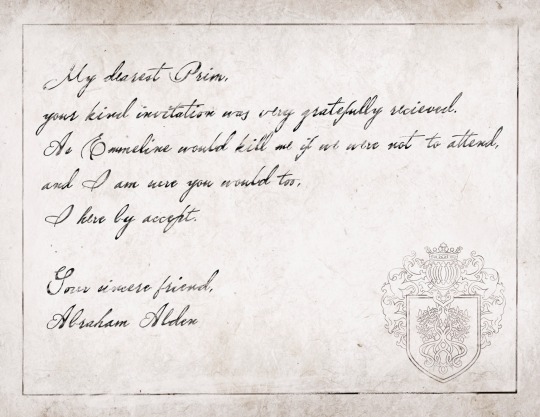 My dearest Prim,
your kind invitation was very gratefully recieved.
As Emmeline would kill me if we were not to attend,
and I am sure you would too,
I here by accept.
Your sincere friend,
Abraham Alden